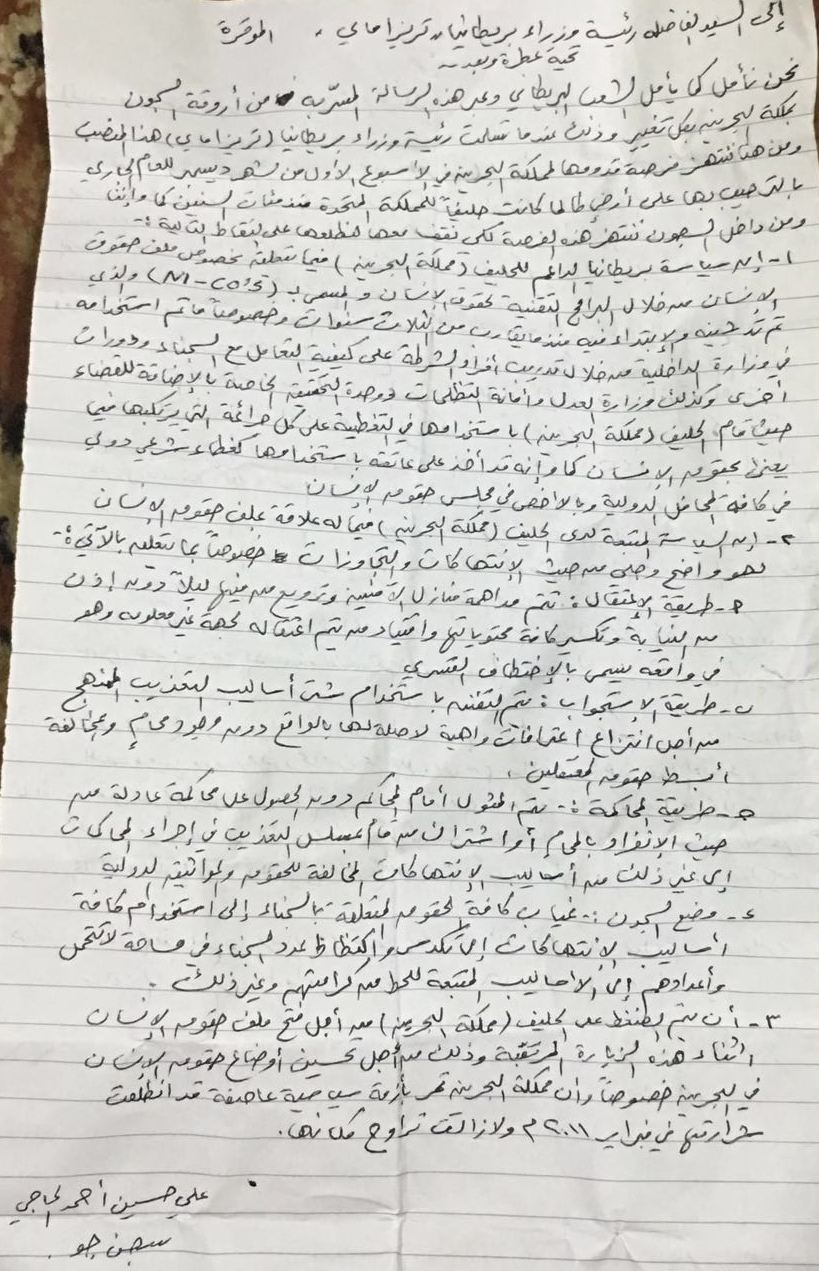 إلى السيد الفاضله رئيسة وزراء بريطانيا، تريزا ماي ،، الموقرة
تحية عطرة وبعد ،،
نحن نأمل كما يأمل الشعب البريطاني وعبر هذه الرسالة المسرّبه من أروقة السجون
بمملكة البحرين بكل تغيير وذلك عندما تسلمت رئيسة وزراء بريطانيا (تريزا ماي) هذا المنصب
ومن هنا ننتهز فرصة قدومها لمملكة البحرين في الأسبوع الأول من شهر ديسمبر للعام الجاري
بالترحيب بها على أرض طالما كانت حليفاً للمملكة المتحدة منذ مئات السنين كما وأننا
ومن داخل السجون ننتهز هذه الفرصة لكي نقف معها لنطلعها على النقاط التالية :-
١- إن سياسة بريطانيا الداعم للحليف (مملكة البحرين) فيما تتعلق بخصوص ملف حقوق
الإنسان من خلال البرامج التقنية لحقوق الإنسان والمسمى بـ والذي
تم تدشينه والإبتداء فيه منذ ما يقارب من الثلاث سنوات وخصوصاً ما تم استخدامه
في وزارة الداخلية من خلال تدريب أفراد الشرطة على كيفية التعامل مع السجناء ودورات
أخرى وكذلك وزارة العدل وأمانة التظلمات ووحدة التحقيق الخاصة بالإضافة للقضاء
حيث قام الحليف (مملكة البحرين) باستخدامها في التغطية على كل جرائمة التي يرتكبها فيما
يعنى بحقوق الإنسان كما وإنه قد أخذ على عاتقه باستخدامها كغطاء شرعي دولي
في كافة المحافل الدولية وبالأخص في مجلس حقوق الإنسان
٢- إن السياسة المتبعة لدى الحليف (مملكة البحرين) فيما له علاقة بملف حقوق الإنسان
لهو واضح وجلي من حيث الإنتهاكات والتجاوزات خصوصاً بما يتعلق بالآتي :
أ- طريقة الإعتقال : تتم مداهمة منازل الآمنيين وترويع من فيها ليلاً دون إذن
من النيابة وتكسير كافة محتوياتها واقتياد من يتم اعتقاله لجهة غير معلومه وهو
في واقعه يسمى بالإختطاف القسري
ب- طريقة الإستجواب : يتم التفنن باستخدام شتى أساليب التعذيب الممنهج
من أجل انتزاع اعترافات واهية لا صلة لها بالواقع دون وجود محامٍ ومخالفة
أبسط حقوق المعتقلين .
ج- طريقة المحاكمة :- يتم المثول أمام المحاكم دون الحصول على محاكمة عادلة من
حيث الإنفراد بالمحامي أو اشتراك من قام بمسلسل التعذيب في إجراء المحاكمات
إلى غير ذلك من أساليب الإنتهاكات المخالفة للحقوق والمواثيق الدولية
د- وضع السجون :- غياب كافة الحقوق المتعلقة بالسجناء إلى استخدام كافة
أساليب الإنتهاكات إلى تكدس واكتظاظ عدد السجناء في مساحة لا تتحمل
وأعدادهم إلى الأساليب المتبعة للحط من كرامتهم وغير ذلك .
٣- أن يتم الضغط على الحليف (مملكة البحرين) من أجل فتح ملف حقوق الإنسان
اثناء هذه الزيارة المرتقبة وذلك من أجل تحسين أوضاع حقوق الإنسان
في البحرين خصوصاً وأن مملكة البحرين تمر بأزمة سياسية عاصفة قد انطلقت
شرارتها في فبراير ٢٠١١م ولازالت تراوح مكانها .
علي حسين أحمد الحاجي
سجن جو .